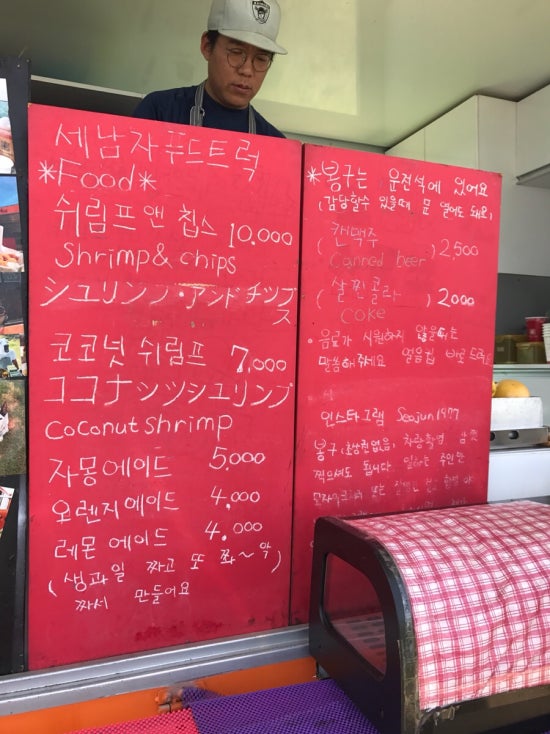 세남자푸드트럭
*Food*
쉬림프 앤 칩스 10,000
Shrimp & chips
シュリンプ・アンドチップ
ス
코코넛 쉬림프 7,000
ココナッツシュリンプ
coconut shrimp
자몽에이드 5,000
오렌지에이드 4,000
레몬에이드 4,000
(생과일 짜고 또 쫘~악
짜서 만들어요)
*봉구는 운전석에 있어요
(감당할수 있을때 문 열어도 돼요)
(캔맥주) 2,500
Canned beer
(살찐콜라) 2000
COKE
음료가 시원하지 않을때는
말씀해주세요 얼음컵 바로드려요
인스타그램 Seojun1977
봉구(초상권없음) 차량촬영 맘껏
찍으셔도 됩니다. 일하는 주인만